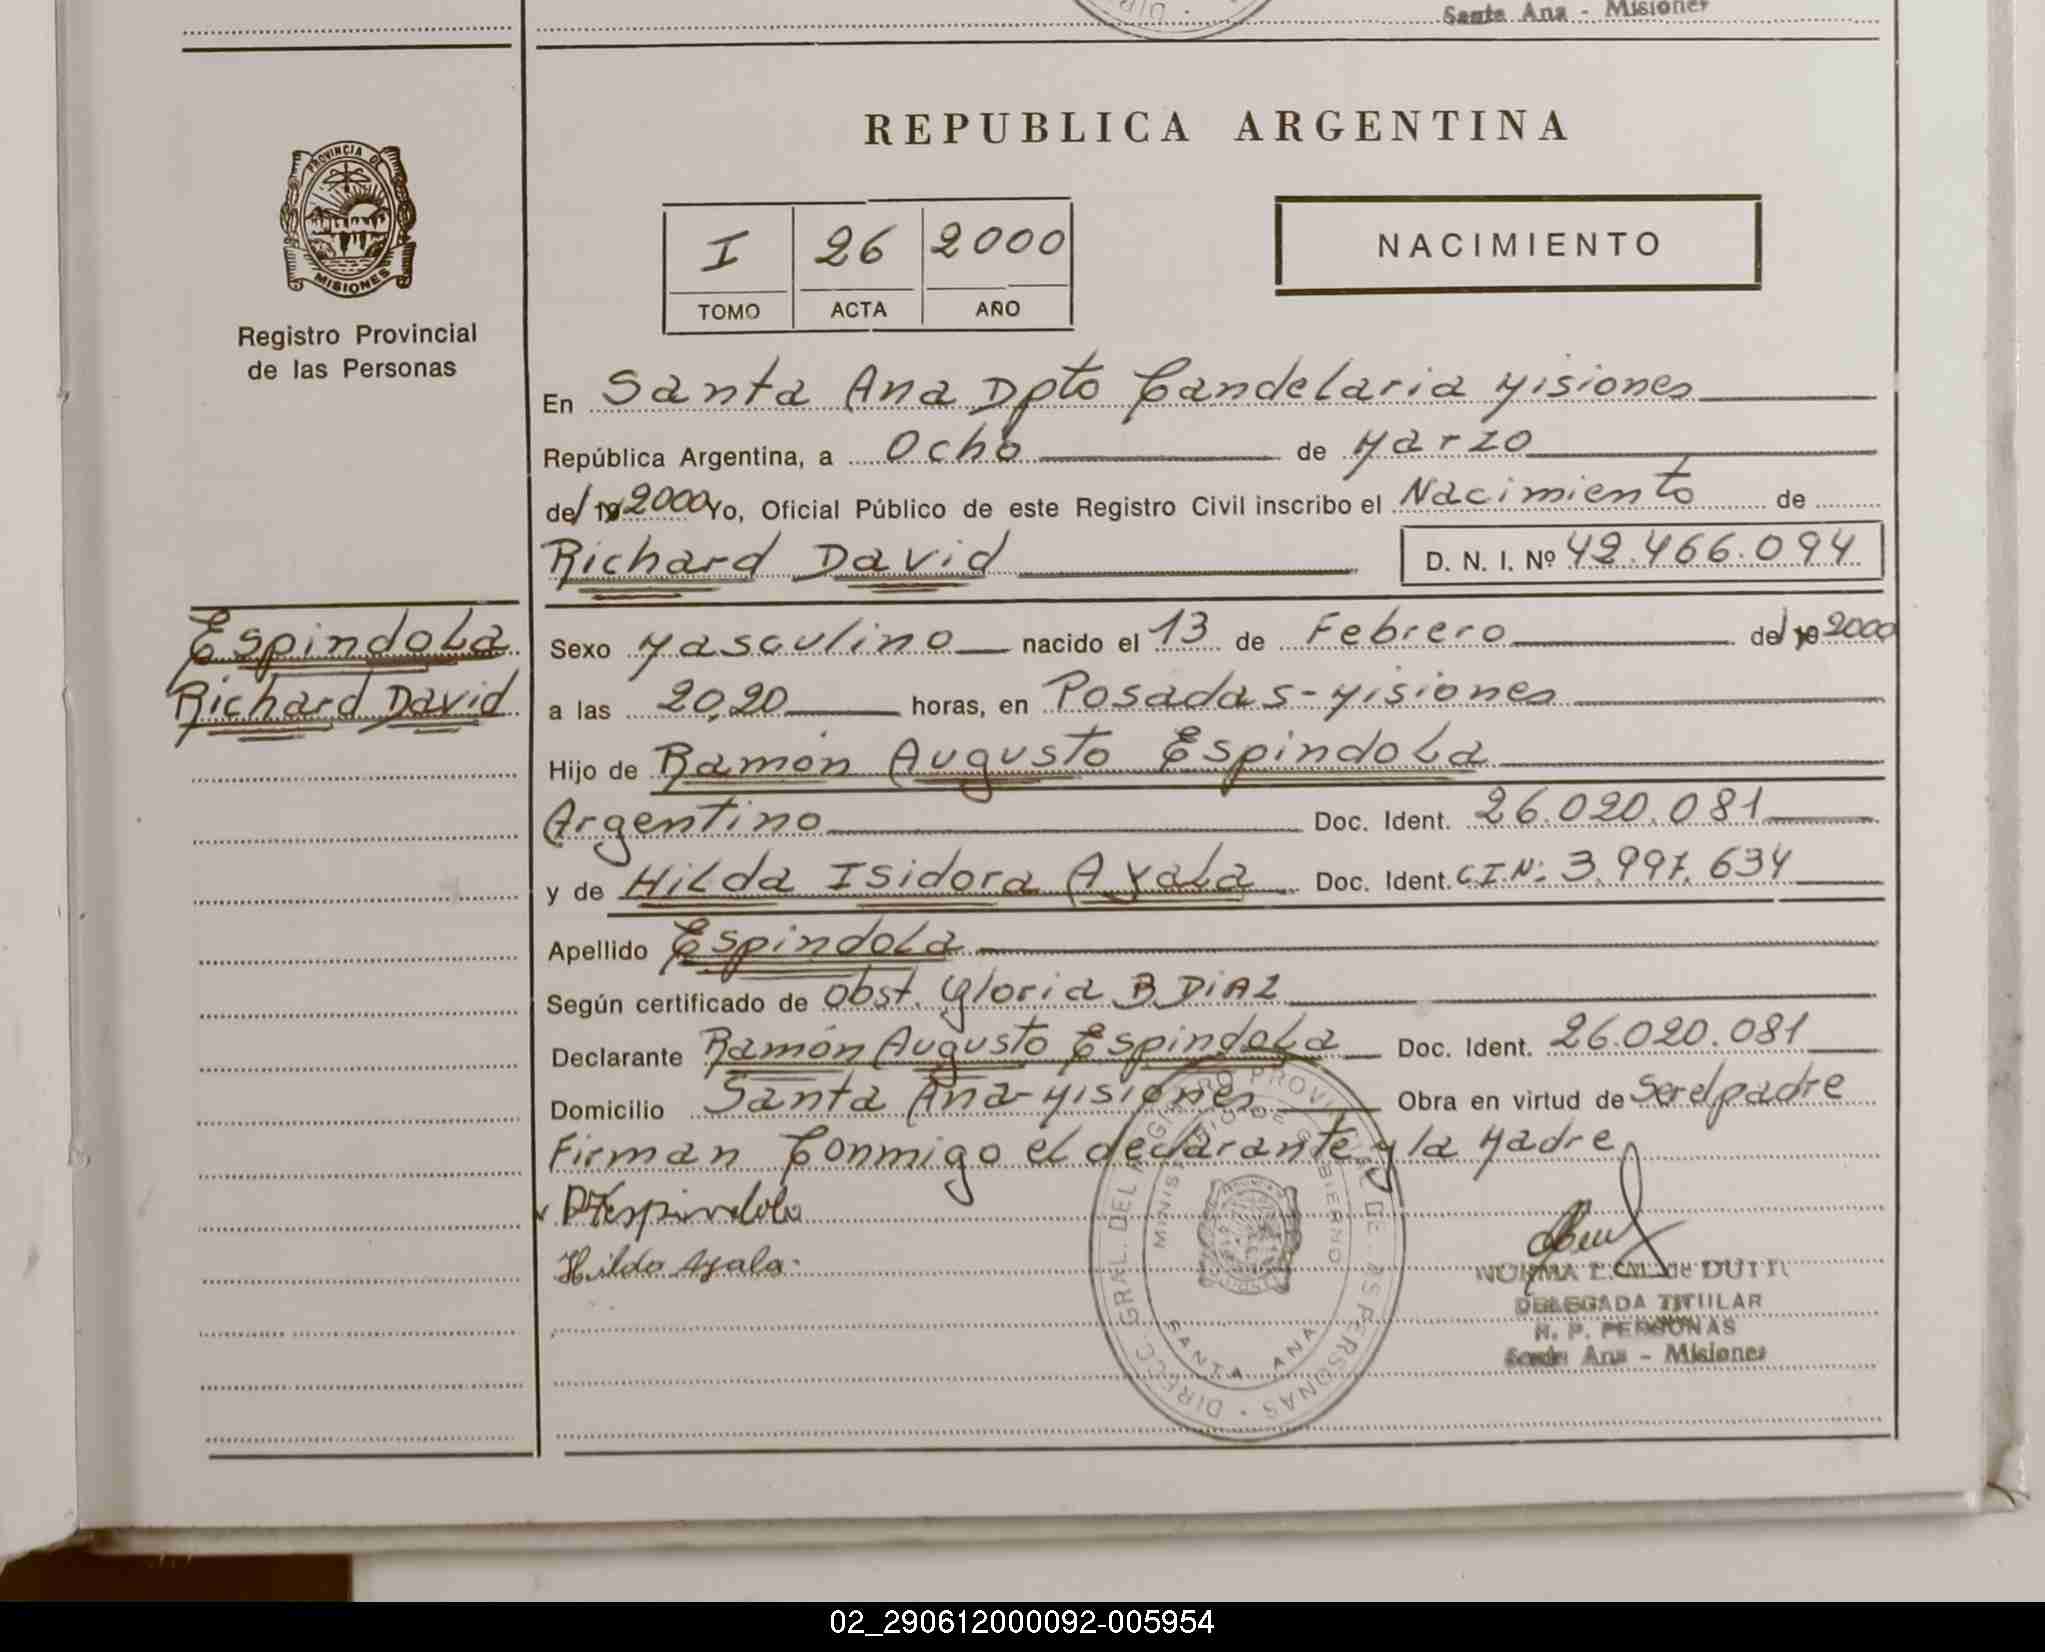 Santa Ana - Misiones
PROVINCIA DE
MISIONES
Registro Provincial
de las Personas
REPUBLICA ARGENTINA
I 26 2000
TOMO ACTA AÑO
NACIMIENTO
En Santa Ana Dpto Candelaria Misiones
República Argentina, a Ocho de Marzo
del 19 2000 Yo, Oficial Público de este Registro Civil inscribo el Nacimiento de
Richard David D. N. I. Nº 42.466.094
Espindola
Richard David
Sexo Masculino nacido el 13 de Febrero del 19 2000
a las 20,20 horas, en Posadas-Misiones
Hijo de Ramón Augusto Espindola
Argentino Doc. Ident. 26.020.081
y de Hilda Isidora Ayala Doc. Ident. C.I.N: 3.997.634
Apellido Espindola
Según certificado de obst. Gloria B DiAZ
Declarante Ramón Augusto Espindola Doc. Ident. 26.020.081
Domicilio Santa Ana-Misiones Obra en virtud de Ser el padre
Firman Conmigo el declarante y la Madre
Espindola
Hilda Ayala
DIRECC. GRAL. DEL REGISTRO PROVINCIAL DE LAS PERSONAS
MINISTERIO DE GOBIERNO
SANTA ANA
NORMA L. M. de DUTTI
DELEGADA TITULAR
R. P. PERSONAS
Santa Ana - Misiones
02_290612000092-005954